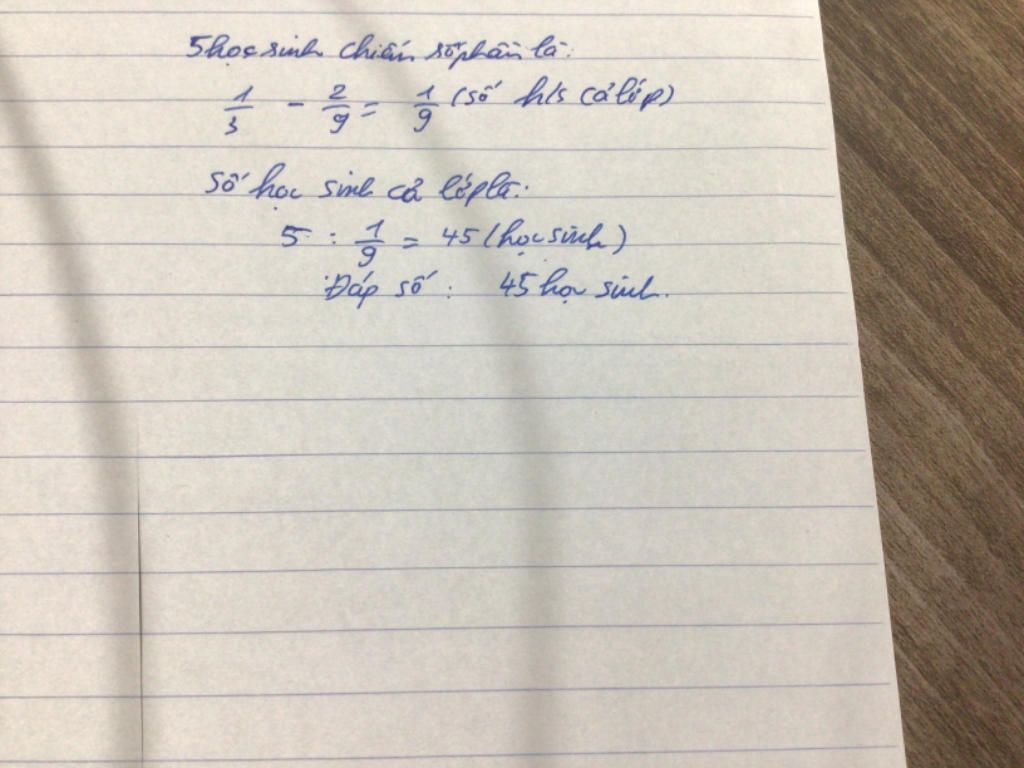 5 học sinh chiếm số phần là:
1/3 - 2/9 = 1/9 (số h/s cả lớp)
Số học sinh cả lớp là:
5 : 1/9 = 45 (học sinh)
Đáp số : 45 học sinh.